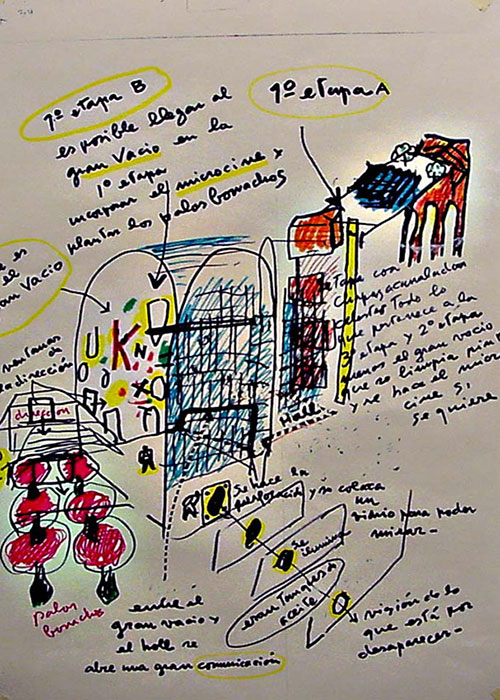 1º etapa B
es posible llegar al
gran Vacio en la
1º etapa
incorporar el microcine y
plantar los palos borrachos
1º etapa A
es
el
gran Vacio
ventanas
de
la dirección
dirección
UK
etapa con
chapas acanaladas
todo lo
que pertenece a la
3º etapa y 2º etapa
menos el gran vacio
que se limpia
y se hace el micro
cine si
se quiere
Hall
se hace la
perforación y se coloca
un
vidrio para poder
mirar-
se ilumina
eran tanques de
aceite
visión de lo
que está por
desaparecer-
palos
borrachos
entre el
gran vacio y
el hall se
abre una gran comunicación